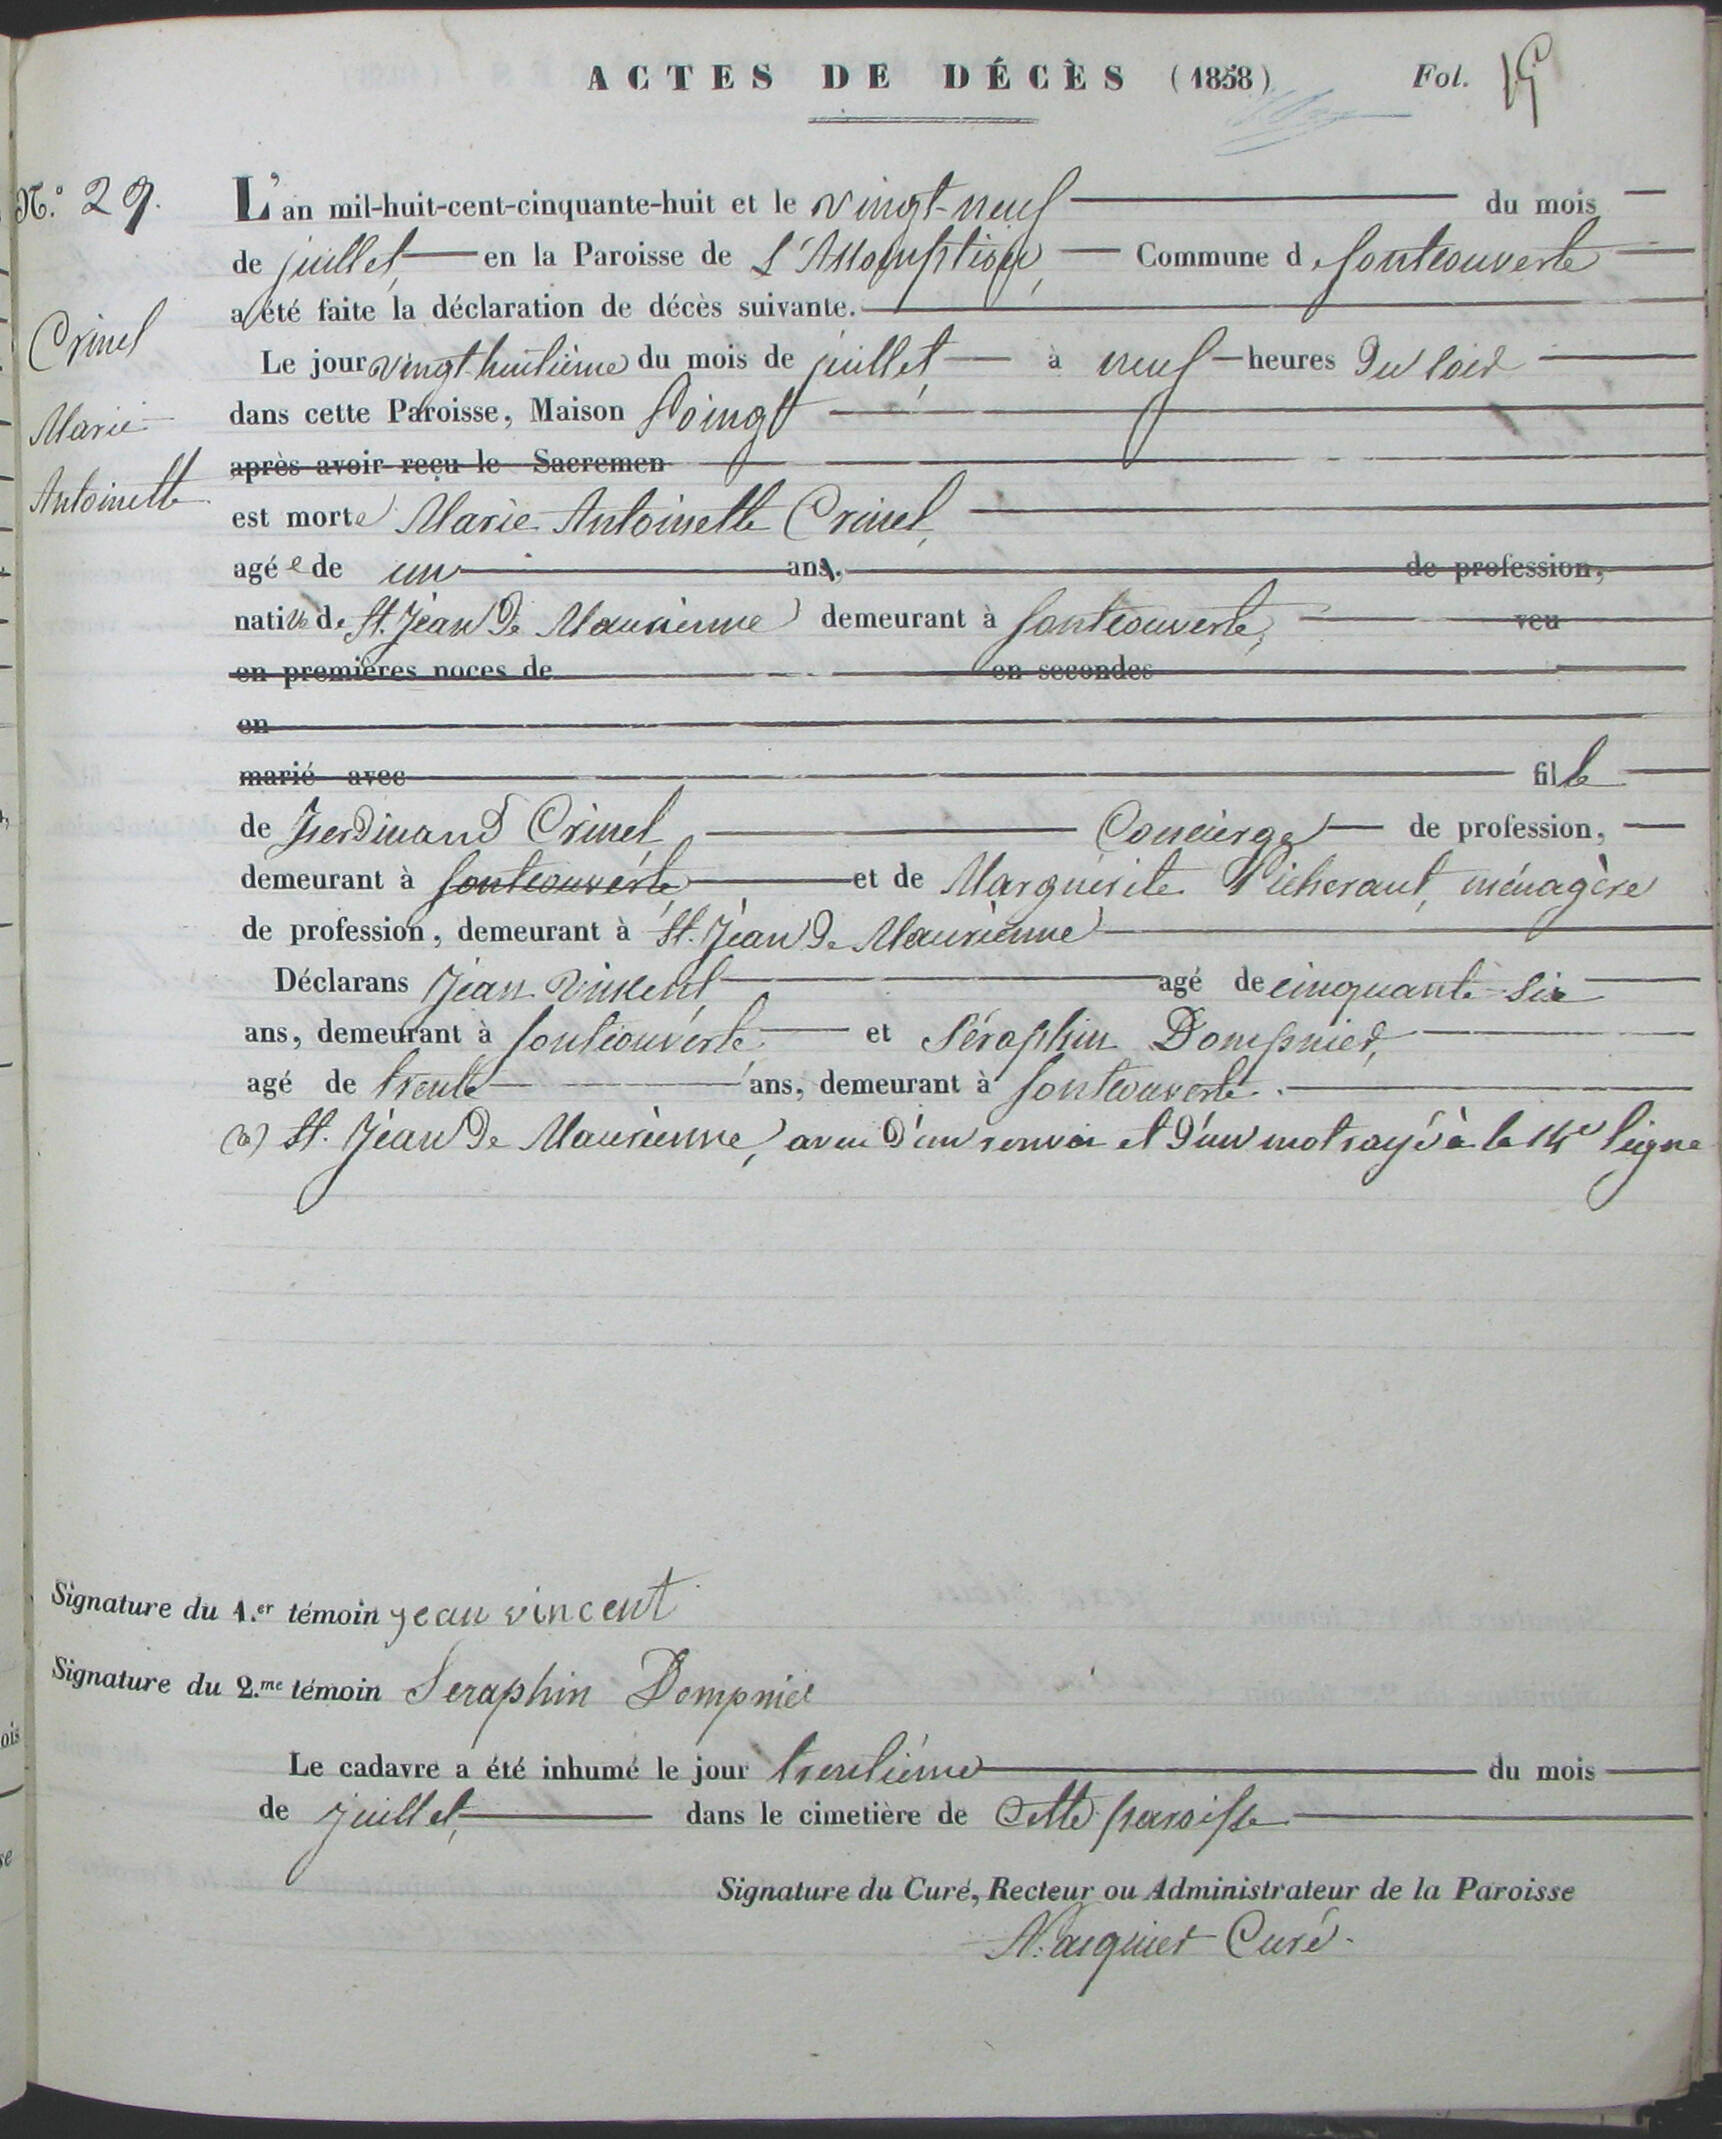 ACTES DE DÉCÈS (1858) Fol. 15
N.º 29.
L'an mil-huit-cent-cinquante-huit et le vingt-neuf du mois
de juillet, en la Paroisse de L'Assomption, Commune d fontcouverte
a été faite la déclaration de décès suivante.
Crinel
Marie
Antoinette
Le jour vingt huitième du mois de juillet, à neuf heures du soir
dans cette Paroisse, Maison Poingt
après avoir reçu le Sacremen
est morte Marie Antoinette Crinel,
agée de un ans, de profession,
native de St. Jean de Maurienne demeurant à fontcouverte, veu
en premières noces de en secondes
en
marié avec fille
de Ferdinand Crinel, Concierge de profession,
demeurant à fontcouverte, et de Marguerite Picheraut, ménagère
de profession, demeurant à St. Jean de Maurienne
Déclarans Jean Vincent, agé de cinquante-six
ans, demeurant à fontcouverte, et Séraphin Dompnier,
agé de trente ans, demeurant à fontcouverte.
(a) St. Jean de Maurienne, avec d'un renvoi et d'un mot rayé à la 14e ligne
Signature du 1.er témoin jean vincent
Signature du 2.me témoin Seraphin Dompnier
Le cadavre a été inhumé le jour trentième du mois
de juillet, dans le cimetière de cette paroisse
Signature du Curé, Recteur ou Administrateur de la Paroisse
Curé.